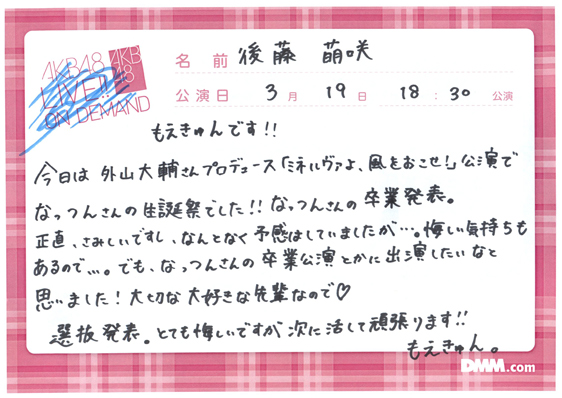 AKB48
LIVE!!
ON DEMAND
AKB
48
名前 後藤 萌咲
公演日 3月 19日 18:30 公演
もえきゅんです!!
今日は 外山大輔さんプロデュース「ミネルヴァよ、風をおこせ!」公演で
なっつんさんの生誕祭でした!!なっつんさんの卒業発表。
正直、さみしいですし、なんとなく予感はしていましたが…。悔しい気持ちも
あるので…。でも、なっつんさんの卒業公演とかに出演したいなと
思いました!大切な大好きな先輩なので♡
選抜発表。とても悔しいですが次に活して頑張ります!!
もえきゅん。
DMM.com